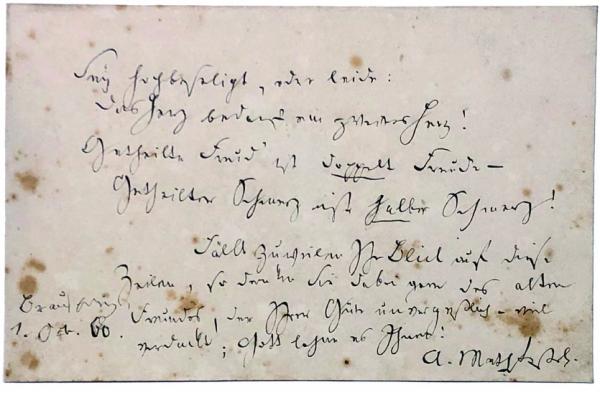 Sey hochbeseligt, oder leide:
Das Herz bedarf ein zweites Herz!
Getheilte Freud' ist doppelt Freude –
Getheilter Schmerz ist halber Schmerz!
Fällt zuweilen Ihr Blick auf diese
Zeilen, so denken Sie dabei gern des alten
Freundes, der Ihrer Güte unvergeßlich – viel
verdankt; Gott lohne es Ihnen!
Braunschweig
1. Oct. 60.
A. Methfessel.